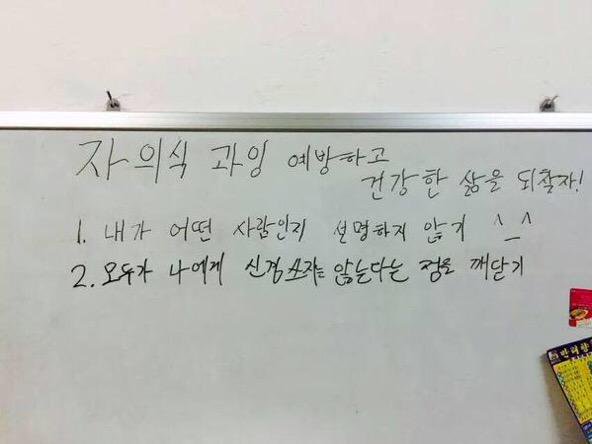 자의식 과잉 예방하고
건강한 삶을 되찾자!
1. 내가 어떤 사람인지 설명하지 않기 ^_^
2. 모두가 나에게 신경쓰지는 않는다는 점을 깨닫기